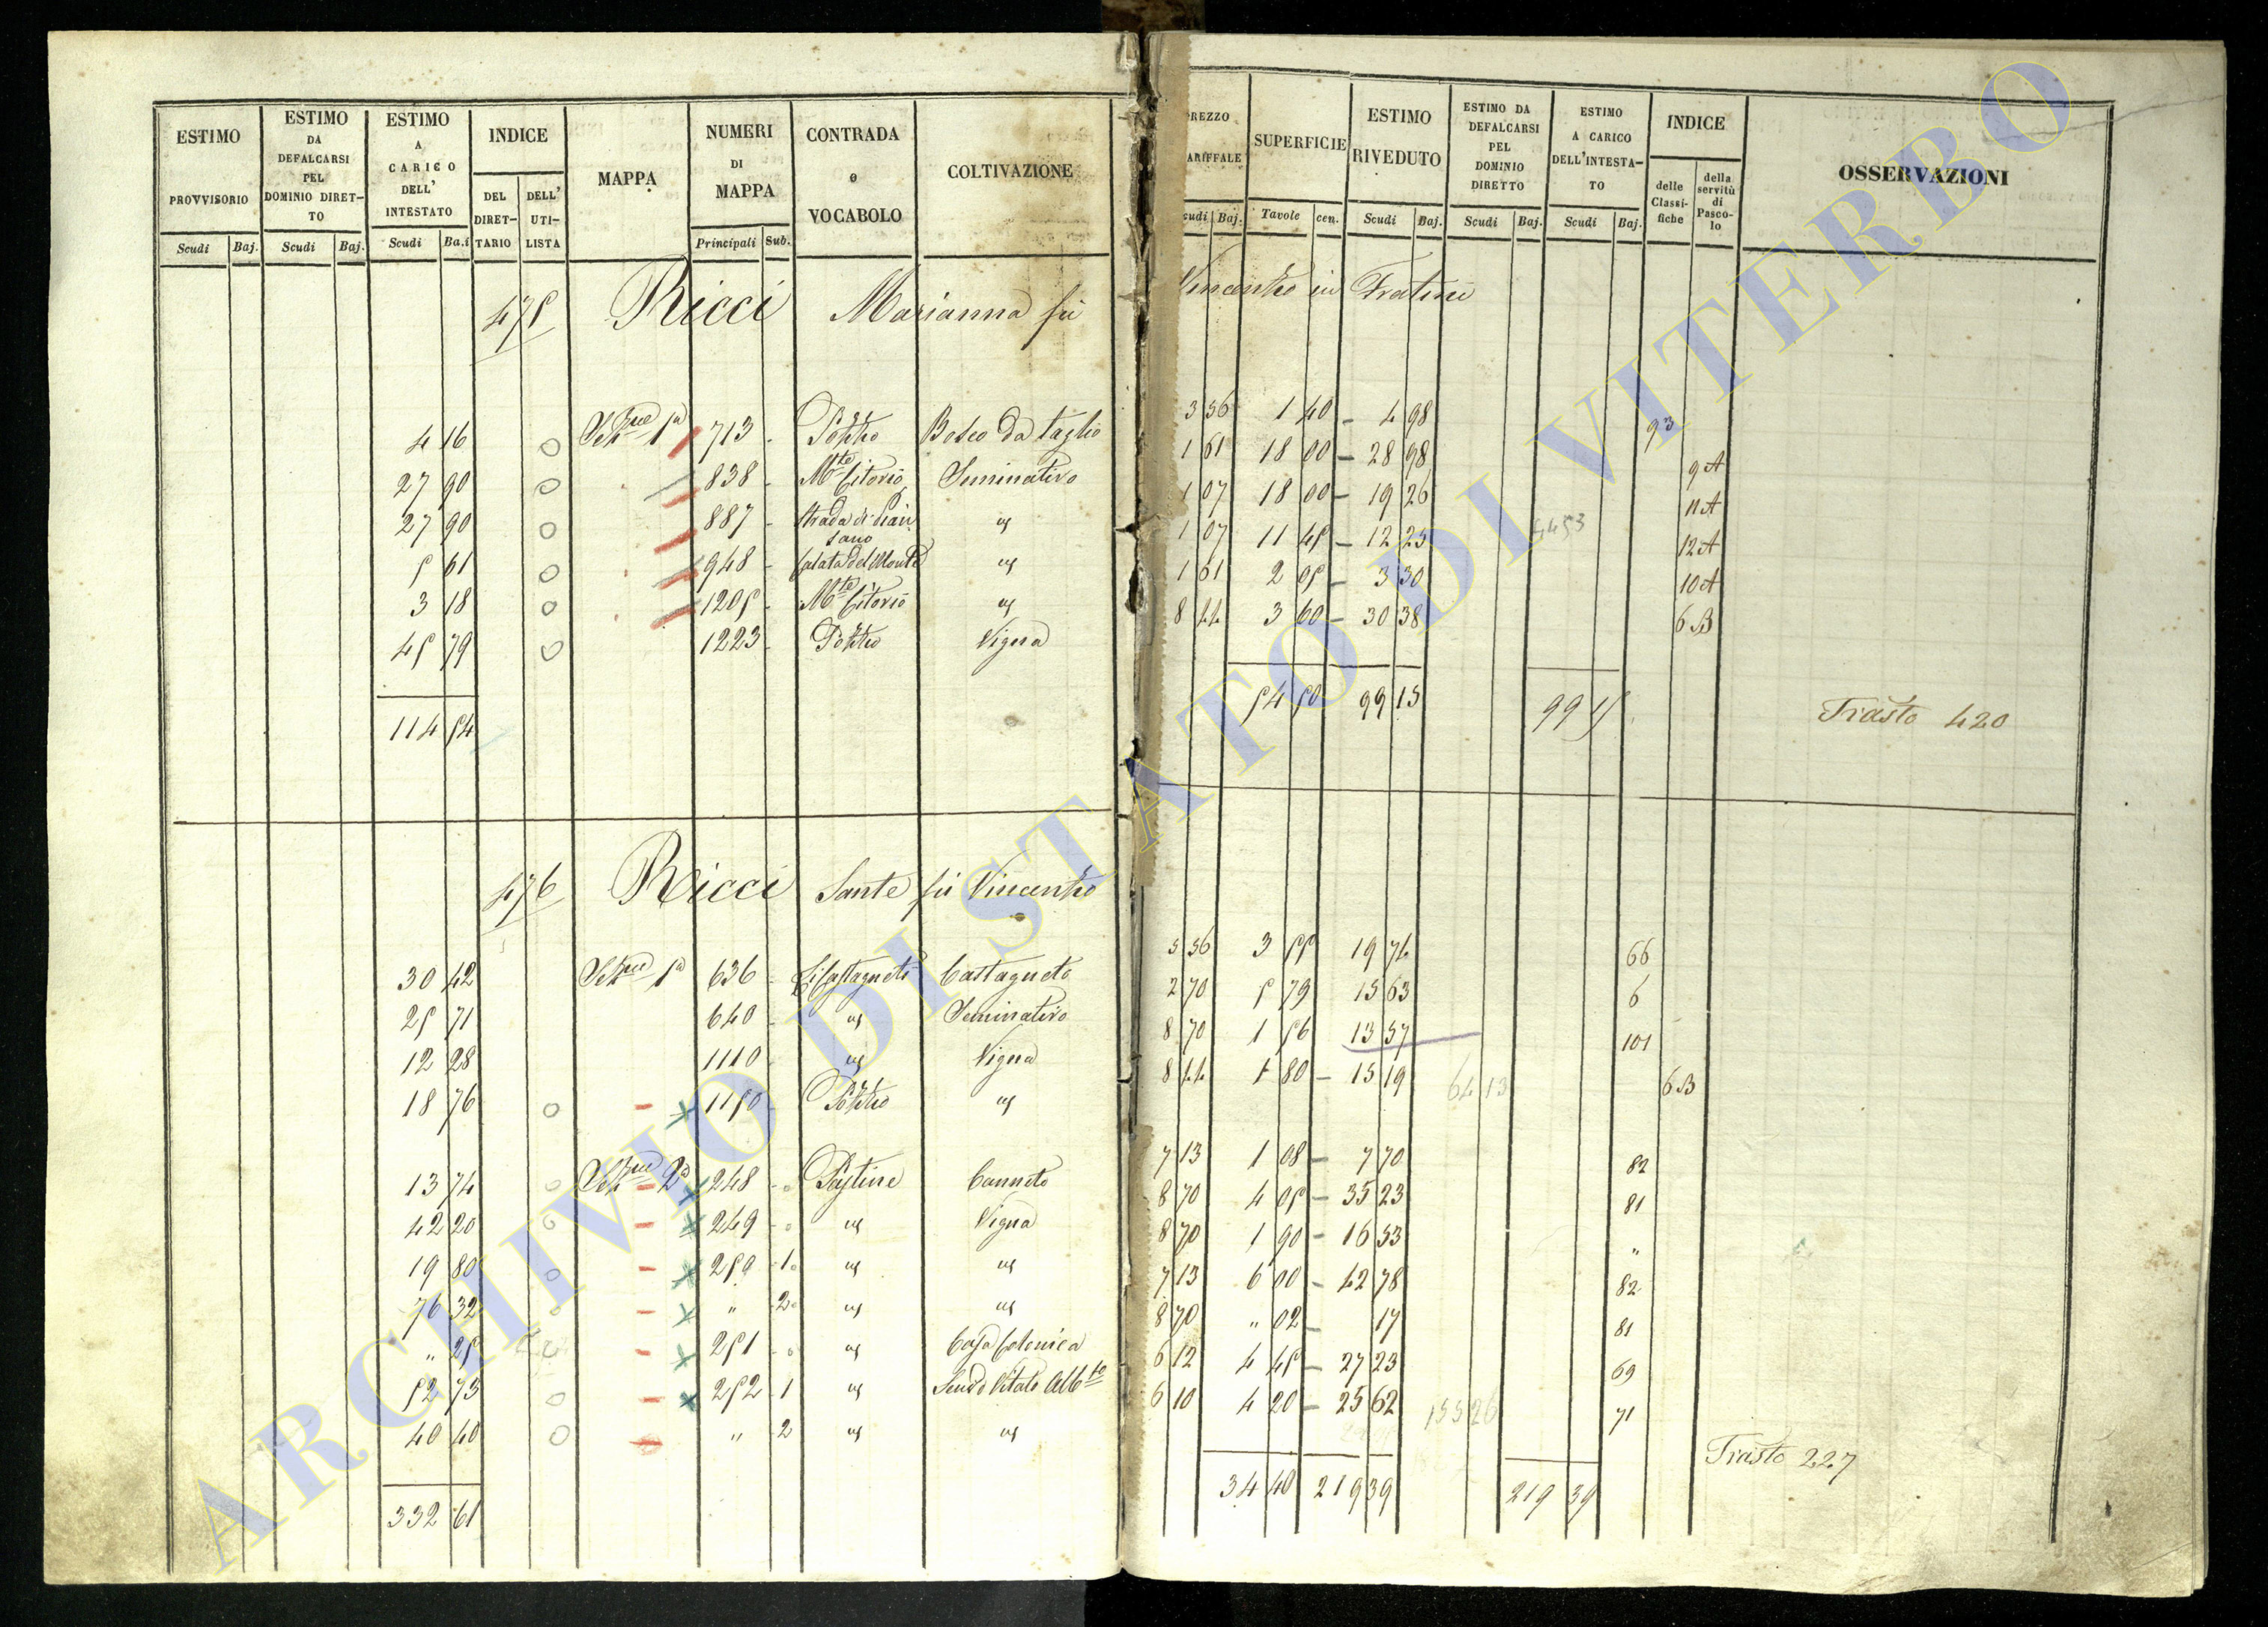 ESTIMO PROVVISORIO Scudi Baj.
ESTIMO DA DEFALCARSI PEL DOMINIO DIRET-TO Scudi Baj.
ESTIMO A CARICO DELL' INTESTATO Scudi Ba.i
INDICE DEL DIRET-TARIO DELL' UTI-LISTA
MAPPA
NUMERI DI MAPPA Principali Sub.
CONTRADA o VOCABOLO
COLTIVAZIONE
REZZO ARIFFALE cudi Baj.
SUPERFICIE Tavole cen.
ESTIMO RIVEDUTO Scudi Baj.
ESTIMO DA DEFALCARSI PEL DOMINIO DIRETTO Scudi Baj.
ESTIMO A CARICO DELL'INTESTA-TO Scudi Baj.
INDICE delle Classi-fiche della servitù di Pasco-lo
OSSERVAZIONI
475 Ricci Marianna fù Vincenzo in Fratini
4 16 Sez.ne 1a 713 Pozzo Bosco da taglio 3 56 1 40 4 98 93
27 90 838 M.te Citorio Seminativo 1 61 18 00 28 98 9 A
27 90 887 Strada di Pian sano " 1 07 18 00 19 26 11 A
5 61 948 Calata del Monte " 1 07 11 45 12 25 12 A
3 18 1205 M.te Citorio " 1 61 2 05 3 30 10 A
45 79 1223 Pozzo Vigna 8 44 3 60 30 38 6 B
114 54 54 50 99 15 99 15 Trasto 420
476 Ricci Sante fù Vincenzo
30 42 Sez.ne 1a 636 Li Castagneti Castagneto 5 56 3 55 19 74 66
25 71 640 " Seminativo 2 70 5 79 15 63 6
12 28 1110 " Vigna 8 70 1 56 13 57 101
18 76 1150 Pozzo " 8 44 1 80 15 19 64 13 6 B
13 74 Sez.ne 2a 248 Pastine Canneto 7 13 1 08 7 70 82
42 20 249 " Vigna 8 70 4 05 35 23 81
19 80 250 1 " " 8 70 1 90 16 53 "
76 32 " 2 " " 7 13 6 00 42 78 82
" 25 251 " Casa Colonica 8 70 " 02 17 81
52 73 252 1 " Sem.vo Vitato Alb.to 6 12 4 45 27 23 69
40 40 " 2 " " 6 10 4 20 25 62 155 26 71
332 61 34 40 219 39 219 39 Trasto 227
ARCHIVIO DI STATO DI VITERBO